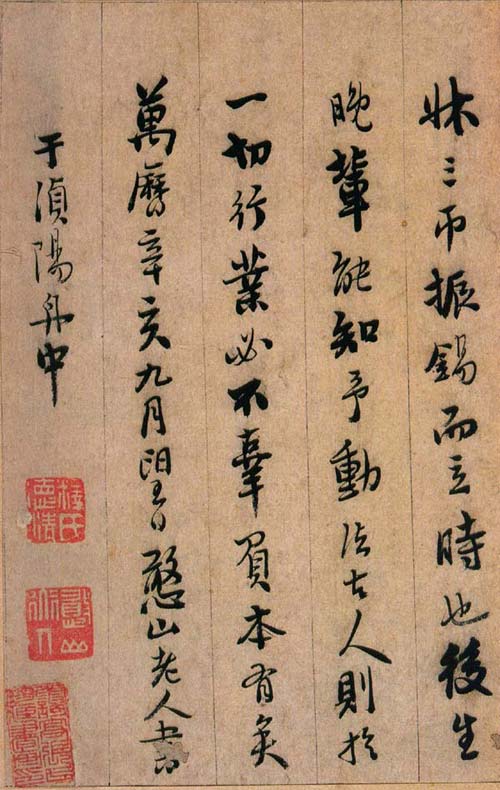 牀三帀振錫而立時也後生
晚輩能知予動法古人則於
一切行業必不辜負本有矣
萬曆辛亥九月憨山老人書
于湞陽舟中
釋氏德清